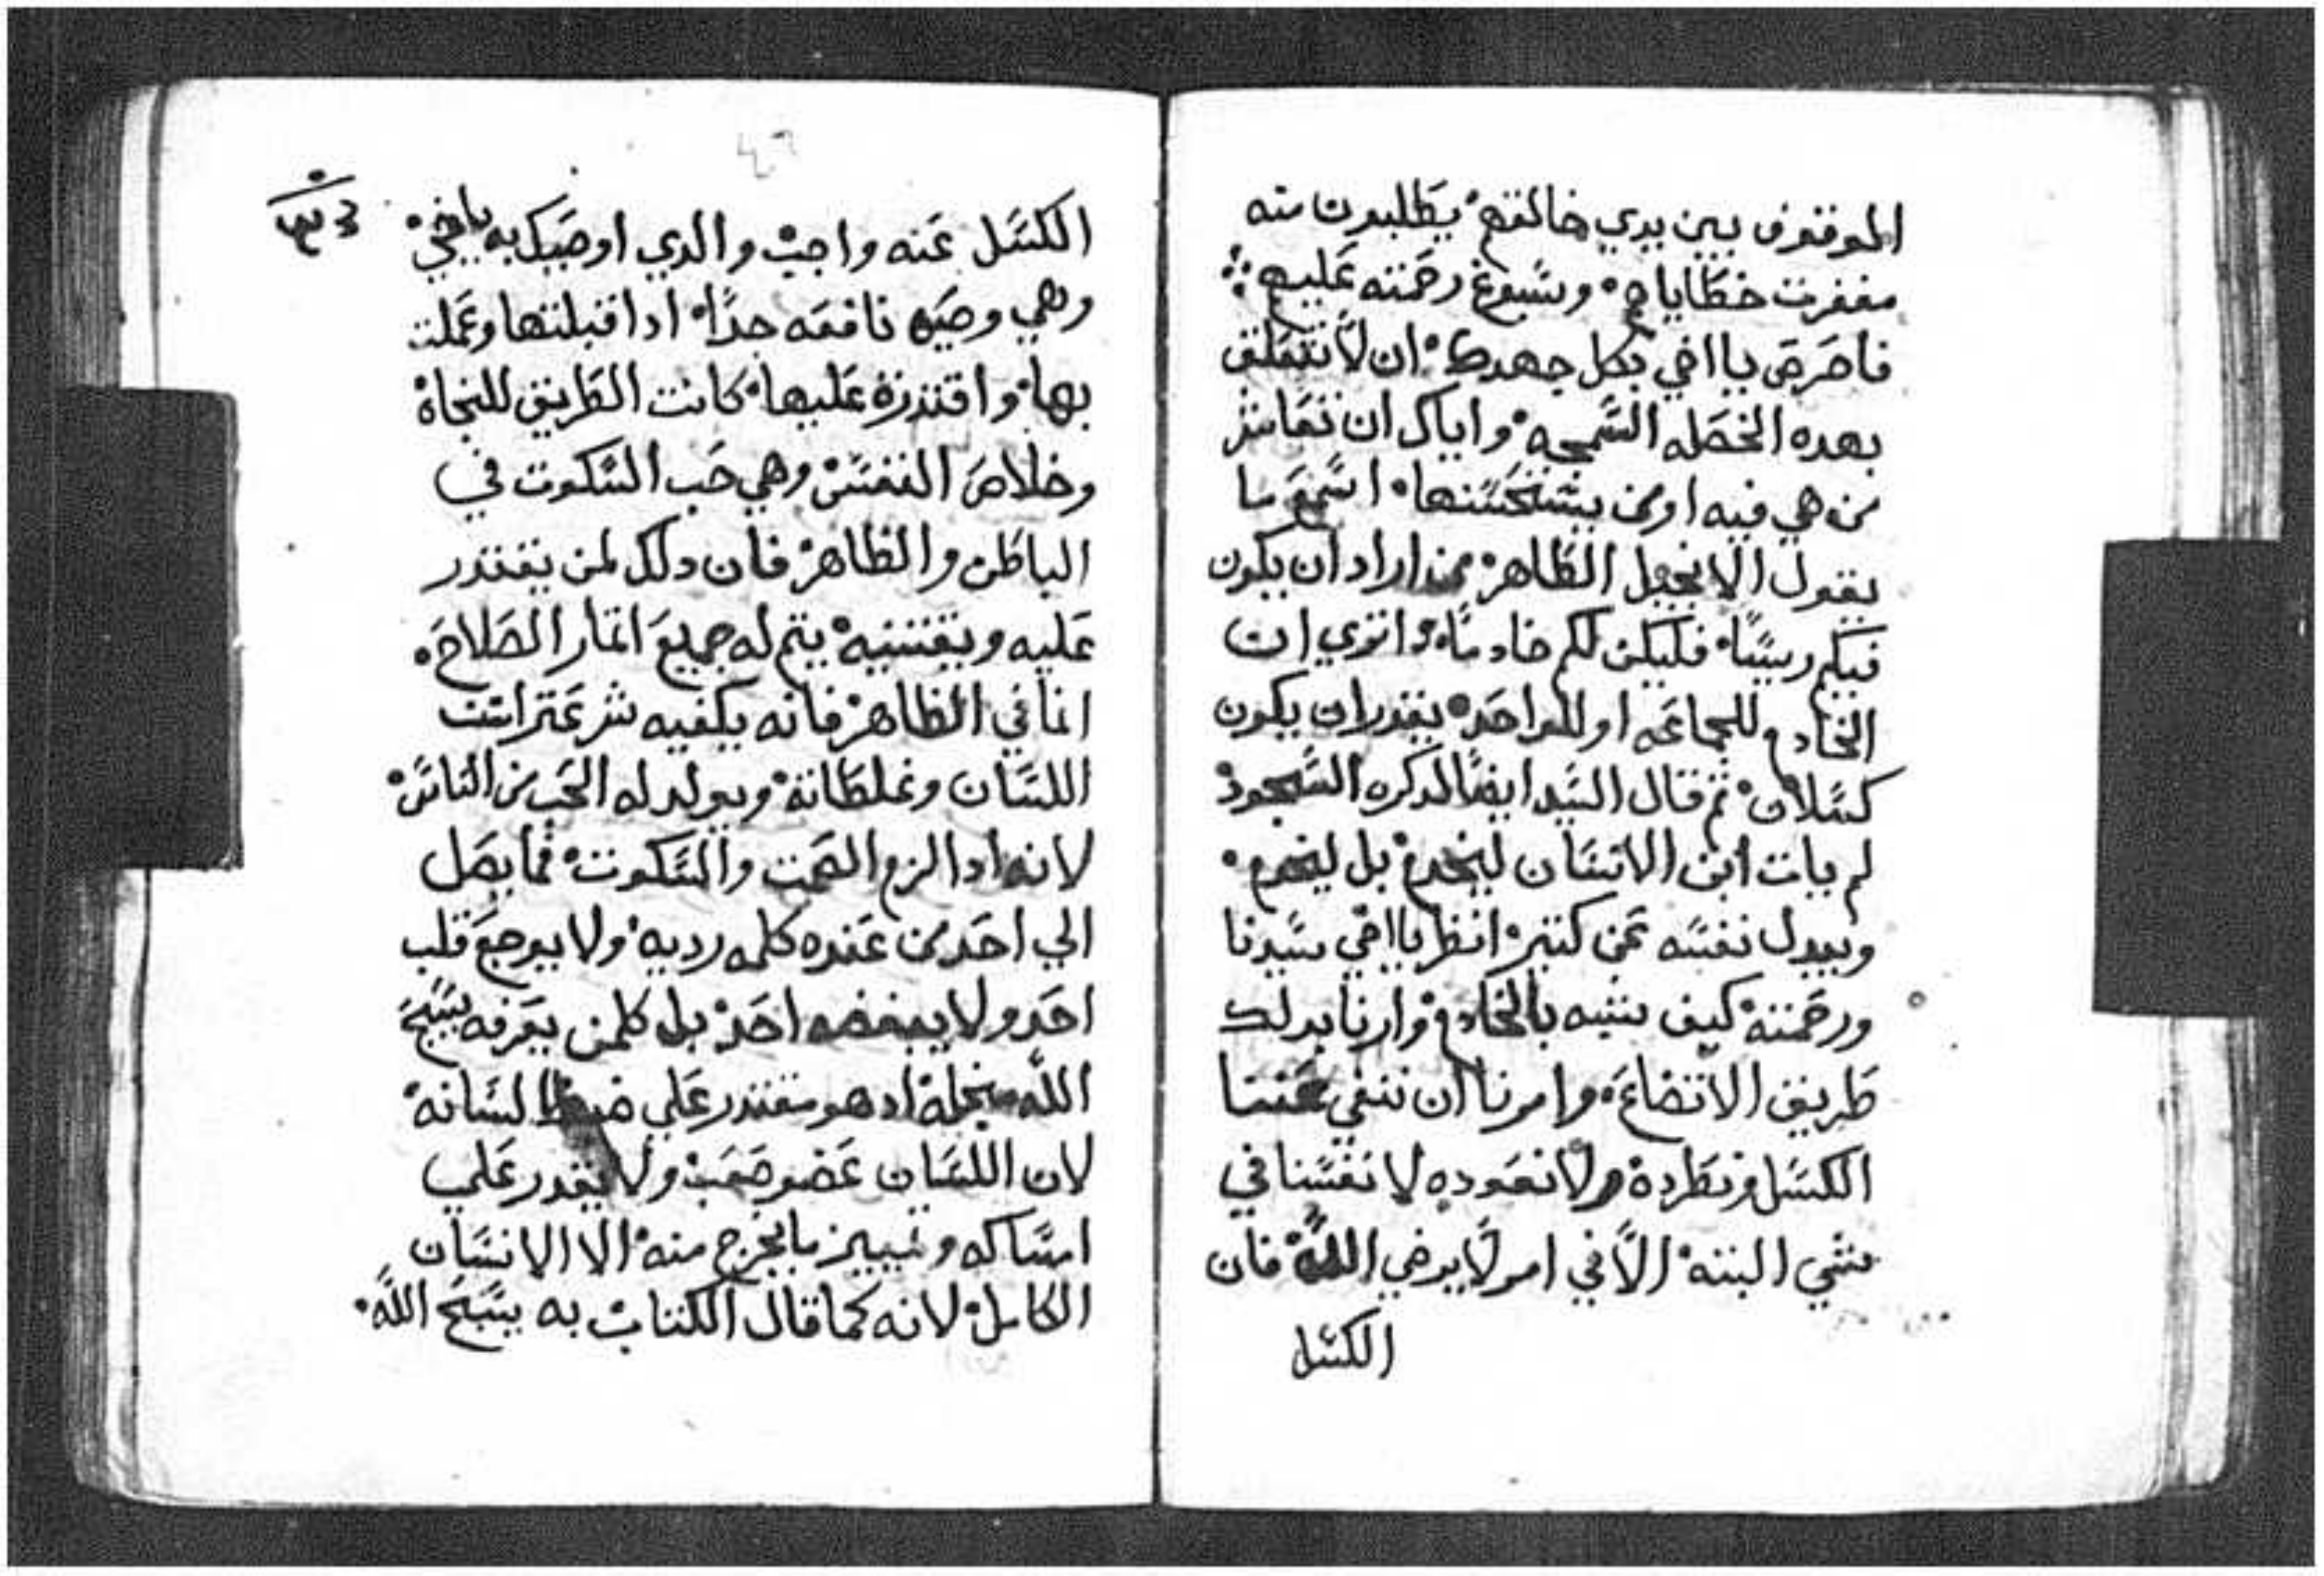 الموقوف بين يدي خالقهم يطلبون منه
مغفرت خطاياهم وسبوغ رحمته عليهم
فاحرص يا اخي بكل جهدك ان لا تتعلق
بهده الخصله السمجه واياك ان تعاشر
من هي فيه اومن يستحسنها اسمع ما
يقول الانجيل الطاهر من اراد ان يكون
فيكم رييسًا فليكن لكم خادمًا وانتري ان
الخادم للجماعه او للواحد يقدران يكون
كسلان ثم قال السيد ايضًا لدكره السجود
لم يات ابن الانسان ليخدم بل ليخدم
ويبدل نفسه عن كتير انظر يا اخي سيدنا
ورحمته كيف شبه بالخادم وارنا بدلك
طريق الاتضاع وامرنا ان ننفي عننا
الكسل ونطرده ولا نعوده لانفسنا في
شي البته الّا في امر لا يرضي الله فان
الكسل
٤٦
الكسل عنه واجب والدي اوصيك به يا خي
وهي وصيه نافعه جدًا ادا قبلتها وعملت
بها واقتدرة عليها كانت الطريق للنجاة
وخلاص النفس وهي حب السكوت في
الباطن والظاهر فان دلك لمن يقتدر
عليه ويقتنيه يتم له جميع اتمار الصلاح
اما في الظاهر فانه يكفيه شر عترات
اللسان وغلطاته ويولد له الحب من الناس
لانه ادا لزم الصمت والسكوت فما يصل
الي احد من عنده كلمه رديه ولا يوجع قلب
احد ولا يبغضه احد بل كلمن يعرفه يسبح
الله من اجله اد هو مقتدر علي ضبط لسانه
لان اللسان عضو صعب ولا يقدر علي
امساكه وتمييز ما يخرج منه الا الانسان
الكامل لانه كما قال الكتاب به يسبح الله